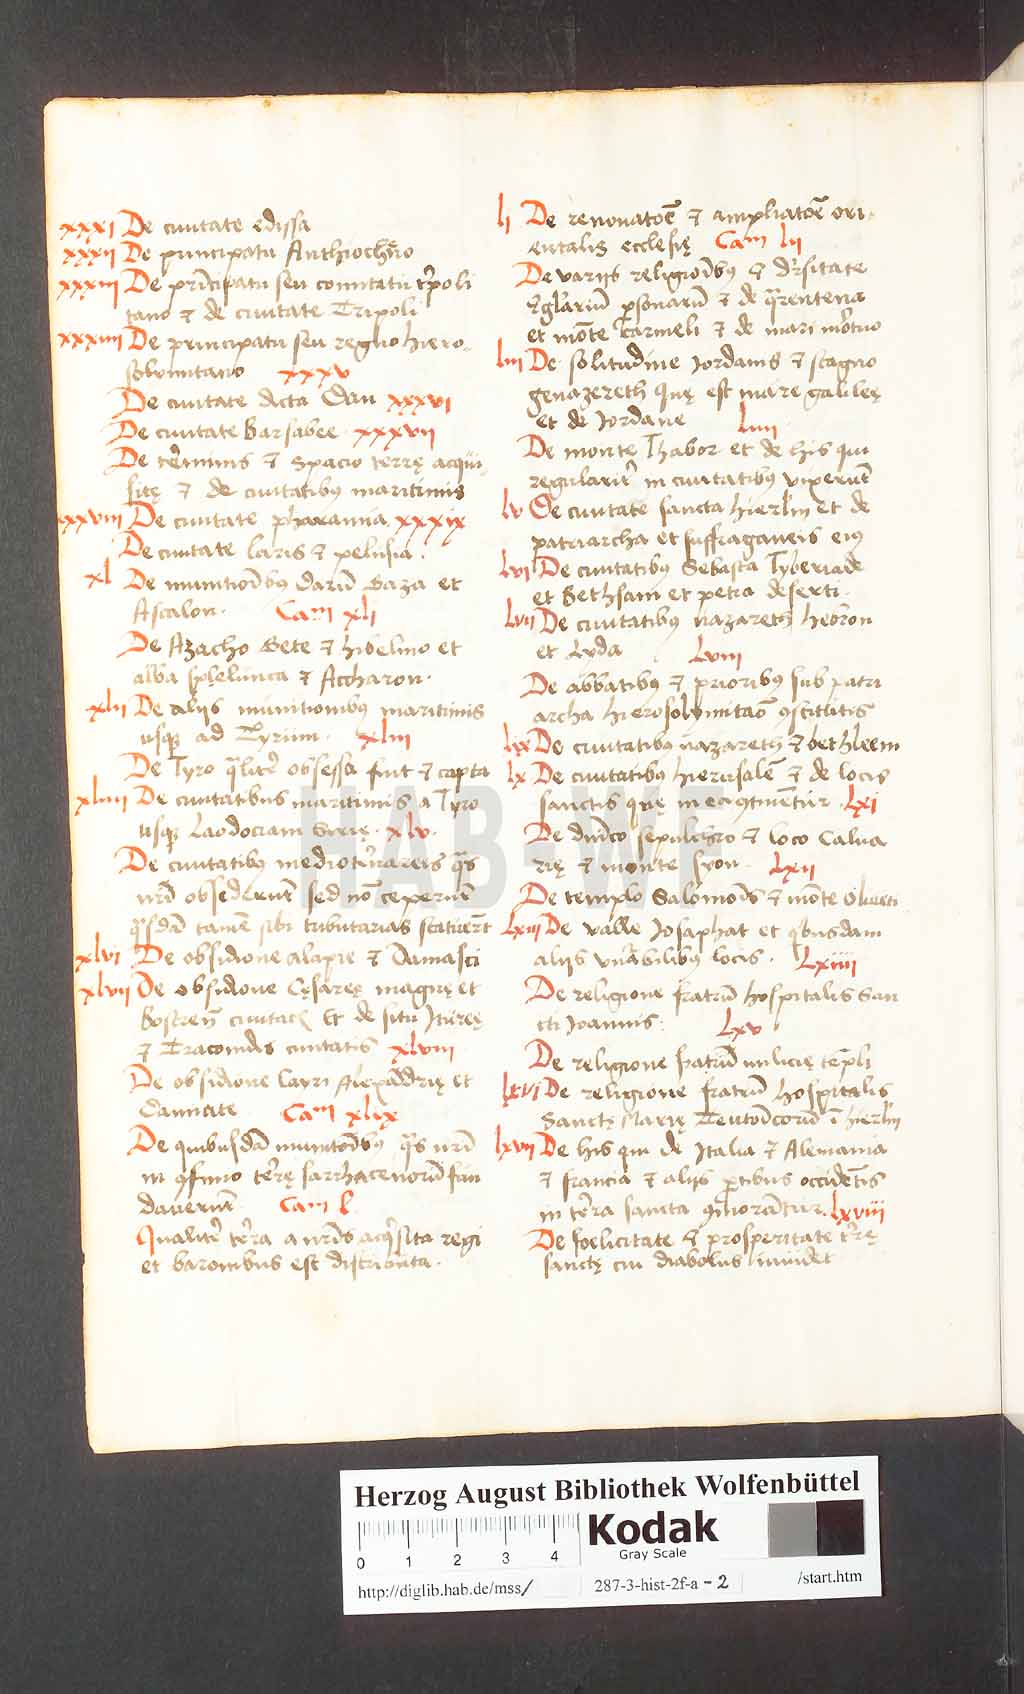 xxxi De ciuitate edissa
xxxii De principatu Anthiocheno
xxxiii De pri̅cipatu seu comitatu t'poli
tano ⁊ de ciuitate Tripoli
xxxiiii De principatu seu regno hiero-
solimitano xxxv
De ciuitate dicta Dan xxxvi
De ciuitate barsabee · xxxvii
De t'rminis ⁊ spacio terrę acqui-
sitę ⁊ de ciuitatibꝰ maritimis
xxxviii De ciuitate pharamia xxxix
De ciuitate laris ⁊ pelusia .
xl De munitio̅ibꝰ daru̅ Gaza et
Ascalon · Cam xli
De Azacho Gete ⁊ hibelino et
alba spęlunca ⁊ Accharon ·
xlii De aliis munitionibus maritimis
usqꝫ ad Tyrum · xliii
De Tyro q̅lit' obsessa fuit ⁊ capta
xliiii De ciuitatibus maritimis a Tyro
usqꝫ Laodociam Sirię · xlv ·
De ciuitatibꝰ mediot'raneis q̅s
nr̅i obsederu̅t sed no̅ ceperu̅t
q̅sda̅ tame̅ sibi tributarias statuer̅t
xlvi De obsidione alapie ⁊ Damasci
xlvii De obsidione Cęsaręę magnę et
bostren̅ ciuitat̅ Et de situ Ituręę
⁊ Traconidis ciuitatis xlviii
De obsidione layri Alexa̅drię et
damiate · Cam xlix
De quibusda̅ munito̅ibꝰ q̅s nr̅i
in ꝯfinio t'rę sarrhacenoru̅ fun
daueru̅t · Cam l
Qualit' t'ra a nr̅is acq̇sita regi
et baronibus est distributa ·
li De renouato̅e ⁊ ampliato̅e ori-
entalis ecclesię Cam lii
De variis religio̅ibꝰ ⁊ d'rsitate
r̅glariu̅ ꝑsonaru̅ ⁊ de q̅rentena
et mo̅te Carmeli ⁊ de mari mortuo
liii De solitudine Jordanis ⁊ stagno
genazereth quę est mare galileę
et de Jordane liiii
De monte Thabor et de his qui
regularit' in ciuitatibꝰ vixeru̅t
lv De ciuitate sancta hierl̅m et de
patriarcha et suffraganeis eiꝰ
lvi De ciuitatibꝰ Sebasta Tyberiade
et Bethsam et petra deserti ·
lvii De ciuitatibꝰ nazareth hebron
et Lyda lviii
De abbatibꝰ ⁊ prioribꝰ sub patri
archa hierosolymitao̅ ꝯstitutis
lix De ciuitatibꝰ nazareth ⁊ bethleem
lx De ciuitatibꝰ hierusale̅ ⁊ de locis
sanctis quę in ea ꝯtine̅tur · lxi
De d̅nico sepulchro ⁊ loco Calua
rię ⁊ monte syon · lxii
De templo Salomo̅is ⁊ mo̅te Oliueti
lxiii De valle Josaphat et q̇busdam
aliis vn̅abilibus locis · Lxiiii
De religione fratru̅ hospitalis San
cti Joannis · Lxv
De religione fratru̅ milicię te̅pli
lxvi De religione fratru̅ hospitalis
Sanctę Marię Teuto̅icoru̅ i̅ hierl̅m
lxvii De his qui de Italia ⁊ Alemania
⁊ francia ⁊ aliis ꝑtibus occide̅tis
in t'ra sancta ꝯmora̅tur · lxviii
De foelicitate ⁊ prosperitate t'rę
sanctę cui diabolus inuidet
HAB-WF
Herzog August Bibliothek Wolfenbüttel
0 1 2 3 4
Kodak
Gray Scale
http://diglib.hab.de/mss/ 287-3-hist-2f-a-2 /start.htm